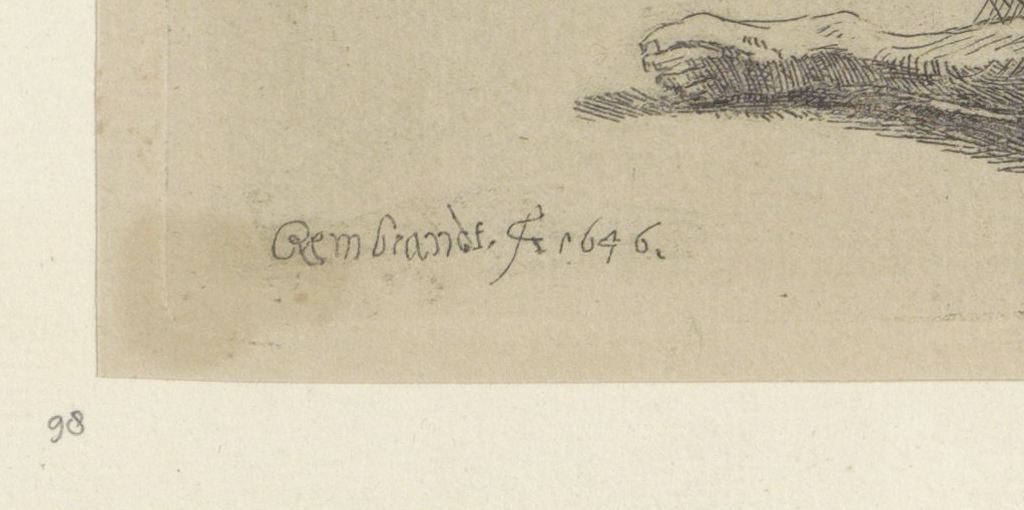 Rembrandt. f. 1646.
98